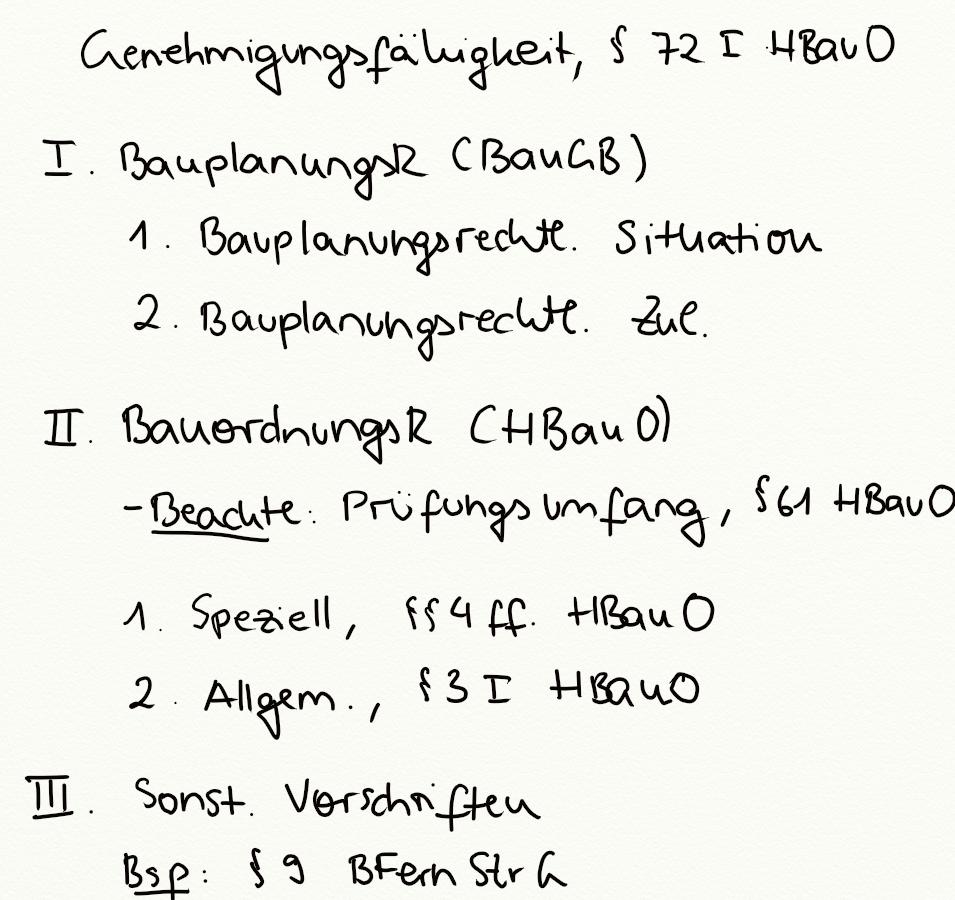 Genehmigungsfähigkeit, § 72 I HBauO
I. BauplanungsR (BauGB)
1. Bauplanungsrechtl. Situation
2. Bauplanungsrechtl. Zul.
II. BauordnungsR (HBauO)
- Beachte: Prüfungsumfang, § 61 HBauO
1. Speziell, §§ 4 ff. HBauO
2. Allgem., § 3 I HBauO
III. Sonst. Vorschriften
Bsp: § 9 BFernStrG